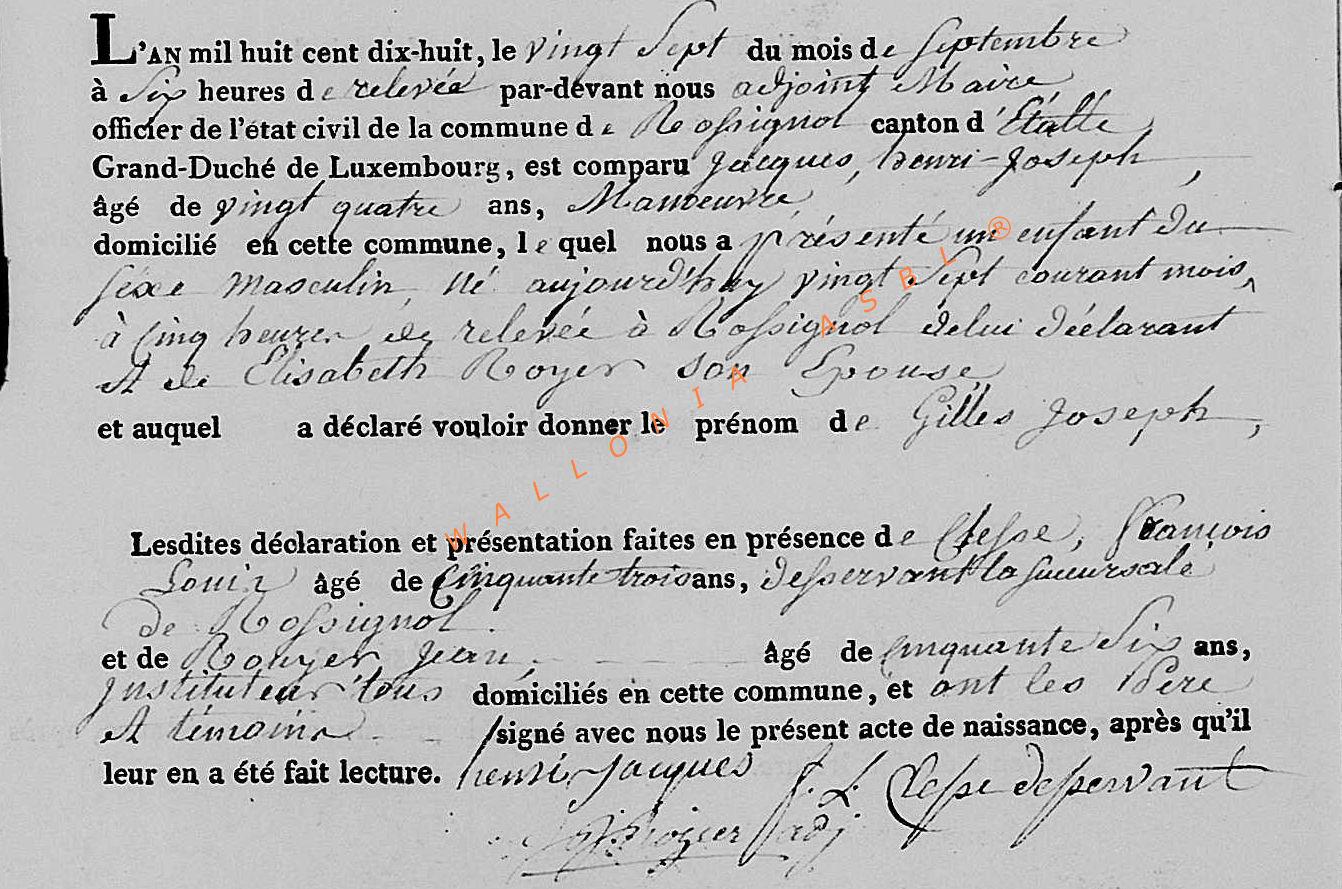 L'AN mil huit cent dix-huit, le vingt Sept du mois de Septembre
à Six heures de relevée par-devant nous adjoint Maire
officier de l'état civil de la commune de Rossignol canton d'Etalle,
Grand-Duché de Luxembourg, est comparu Jacques, henri-Joseph,
âgé de vingt quatre ans, Manoeuvre,
domicilié en cette commune, lequel nous a présenté un enfant du
séxe Masculin, Né aujourd'huy vingt Sept courant mois,
à Cinq heures de relevée à Rossignol de lui déclarant
et de Elisabeth Royer Son Epouse
et auquel a déclaré vouloir donner le prénom de Gilles Joseph,
Lesdites déclaration et présentation faites en présence de Clesse, François
Louis âgé de Cinquante trois ans, desservant la succursale
de Rossignol.
et de Rouyer, Jean, âgé de Cinquante Six ans,
Instituteur tous domiciliés en cette commune, et ont les Père
et témoins signé avec nous le présent acte de naissance, après qu'il
leur en a été fait lecture. henri Jacques f. L. Clesse desservant
adj
WALLONIA ASBL ®